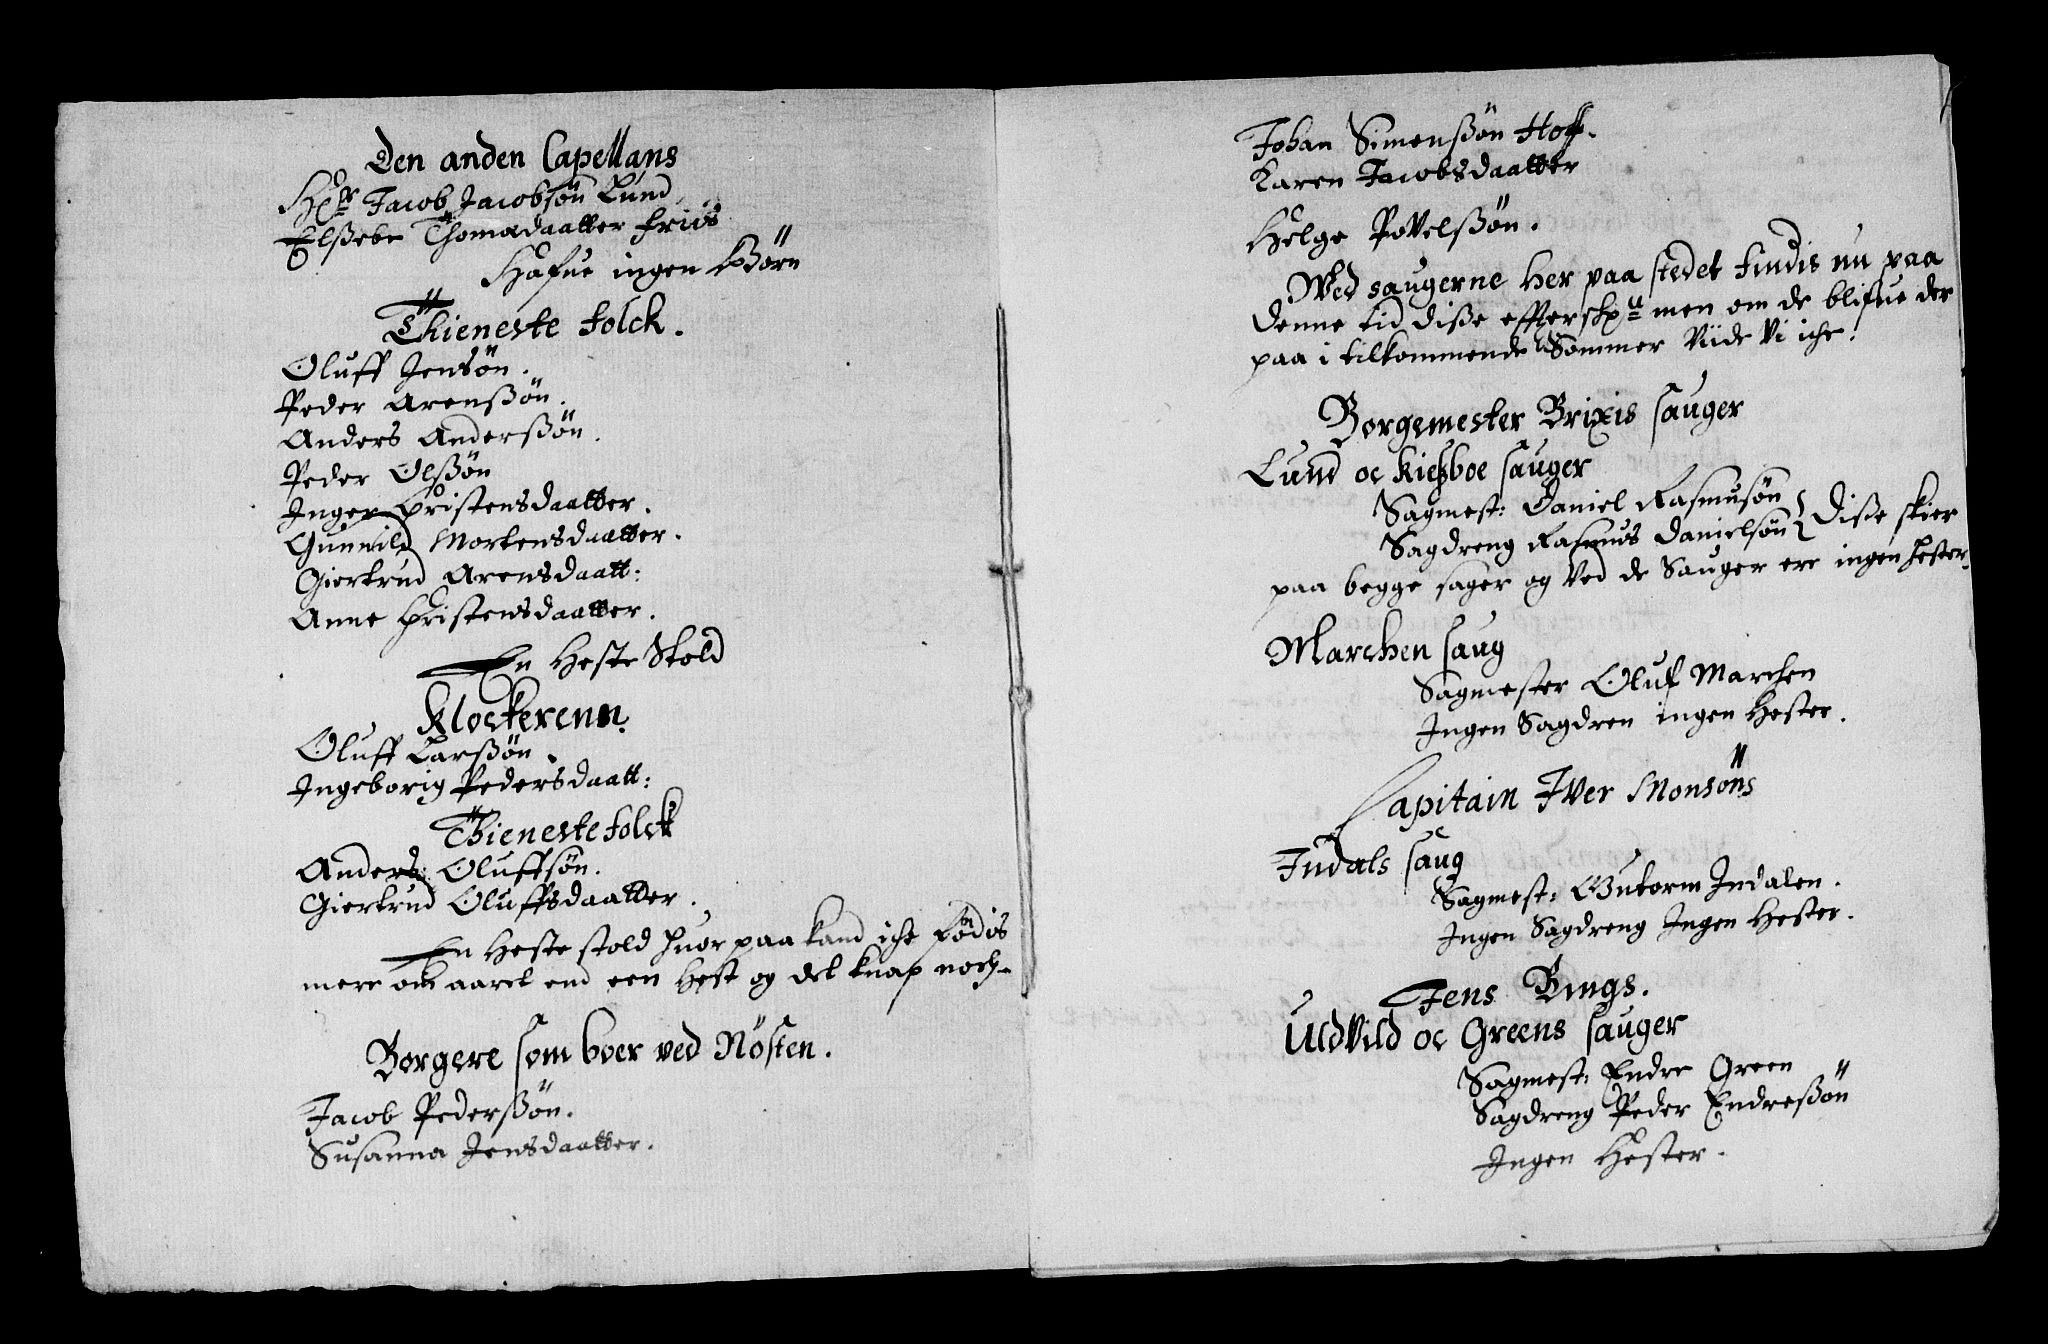 Den anden Capellans
Hr Jacob Jacobsøn Lund
Elßebe Thomadaatter Friis
Hafue ingen Børn
Thieneste folck.
Oluff Jensøn.
Peder Arenßøn.
Anders Anderßøn.
Peder Olßøn
Inger Christensdaatter.
Gunnild Mortensdaatter.
Giertrud Arensdaatt:
Anne Christensdaatter.
En Heste Stold
Klockerenn.
Oluff Larßøn.
Ingeborig Pedersdaatt:
Thieneste folck
Anders Oluffsøn.
Giertrud Oluffsdaatter.
En Heste stold huor paa kand iche Fødis
mere om aaret end een Hest og det knap noch
Borgere som boer ved Nøsten.
Jacob Pederßøn.
Susanna Jensdaatter.
Johan Simenßøn Hoff.
Karen Jacobsdaatter
Helge Povelßøn.
Wed saugerne her paa stedet findis nu paa
denne tid diße effterschne men om de blifue der
paa i tilkommende Sommer Viide Vi iche.
Borgemester Brixis sauger
Lund oc Kießboe sauger
Sagmest: Daniel Rasmusøn
Sagdreng Rasmus Danielsøn } Diße skier
paa begge sager og Ved de Sauger ere ingen Hester.
Marchen saug
Sagmester Oluf Marchen
Ingen Sagdren ingen Hester.
Capitain Iver Monsøns
Indals saug
Sagmest: Gutorm Indalen.
Ingen Sagdreng Ingen Hester.
Jens Bings.
Uldvild oc Greens sauger
Sagmest: Endre Green
Sagdreng Peder Endreßøn
Ingen Hester.